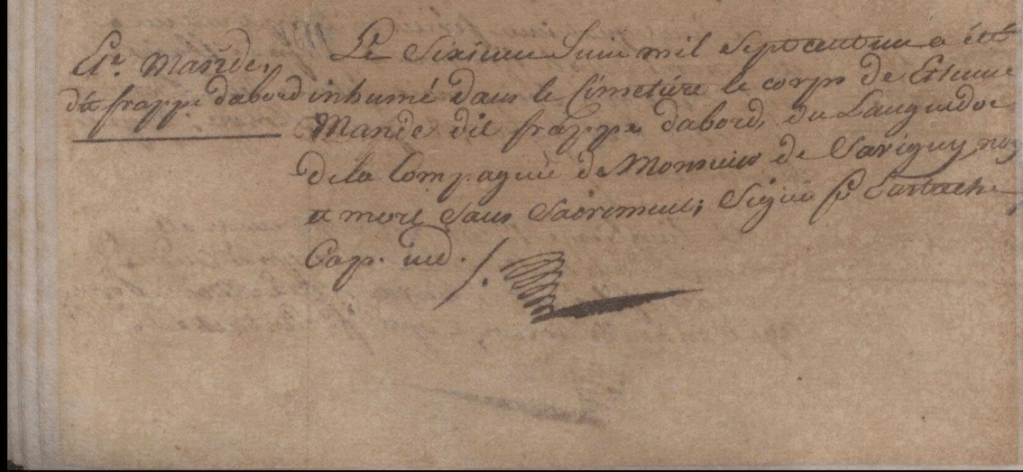 Et. Mande,
dit frappe dabord
Le Sixieme Juin mil Septcentun a été
inhumé dans le Cimetiére le corps de Estienne
Mande dit frappe dabord, du Languedoc
de la Compagnie de Monsieur de Savigny
et mort sans Sacrement; Signé
Cap. ind. /.